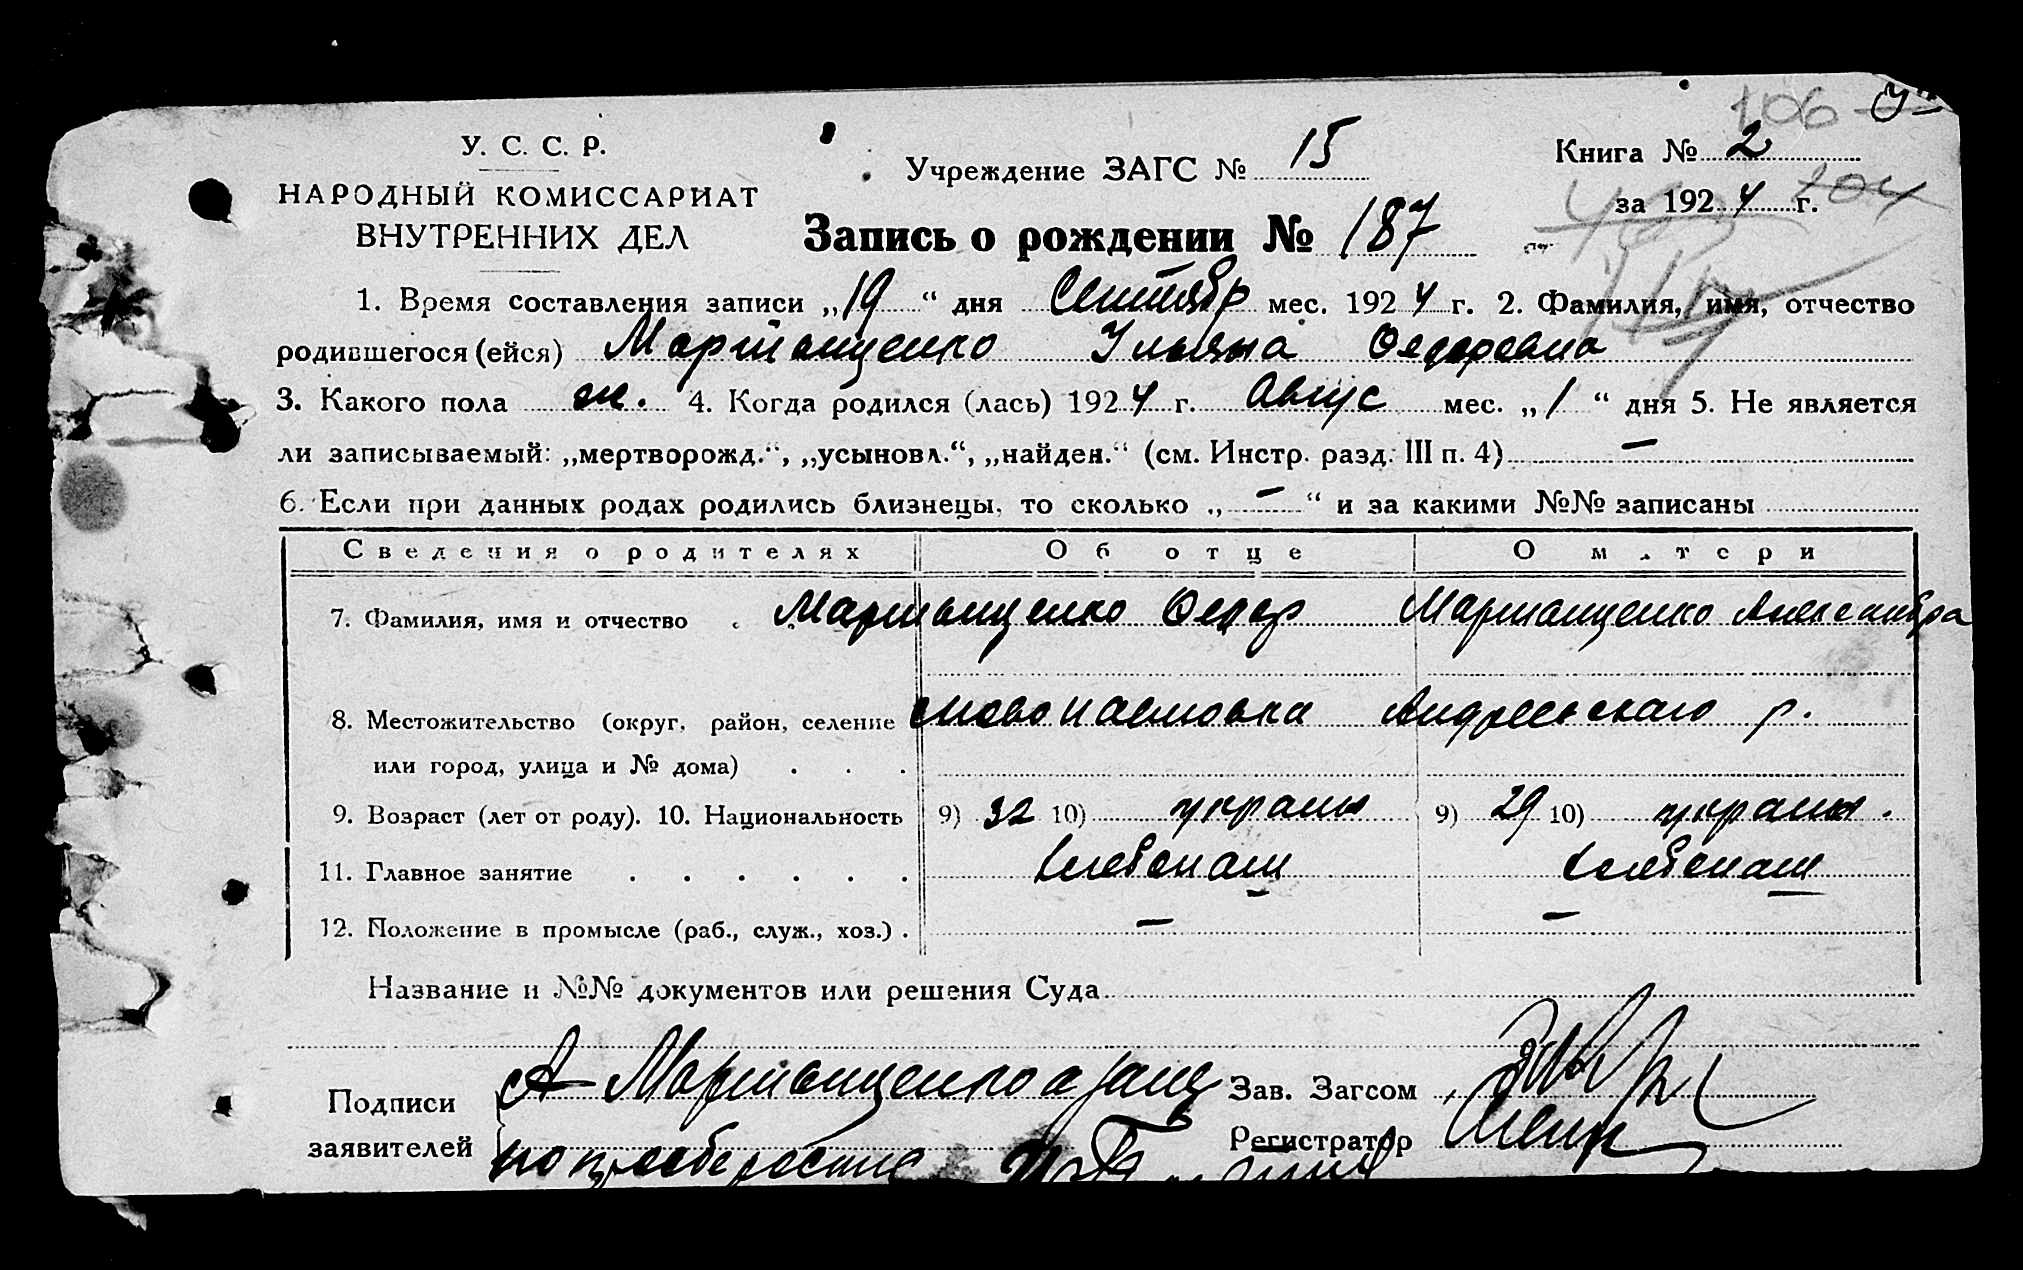 106
У. С. С. Р.
НАРОДНЫЙ КОМИССАРИАТ
ВНУТРЕННИХ ДЕЛ
Учреждение ЗАГС № 15
Книга № 2
за 192 4 г. 104
Запись о рождении № 187
1. Время составления записи „19“ дня Сентябр мес. 192 4 г. 2. Фамилия, имя, отчество
родившегося (ейся) Мартыщенко Ульяна Федоровна
3. Какого пола ж. 4. Когда родился (лась) 192 4 г. Авгус мес. „1“ дня 5. Не является
ли записываемый: „мертворожд.“, „усыновл.“, „найден.“ (см. Инстр. разд. III п. 4) —
6. Если при данных родах родились близнецы, то сколько „—“ и за какими №№ записаны
Сведения о родителях Об отце О матери
7. Фамилия, имя и отчество Мартыщенко Федор Мартыщенко Александра
8. Местожительство (округ, район, селение Андреевскаго р.
или город, улица и № дома) . . .
9. Возраст (лет от роду). 10. Национальность 9) 32 10) украин 9) 29 10) украин.
11. Главное занятие . . . . . . хлебопаш хлебопаш
12. Положение в промысле (раб., служ., хоз.) . — —
Название и №№ документов или решения Суда
Подписи А Мартыщенко Зав. Загсом
заявителей Регистратор